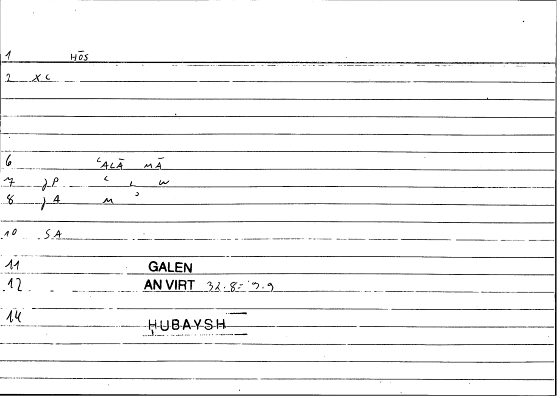 1 HŌS
2 XC
6 ʿALĀ MĀ
7 JP ʿ L W
8 JA M ʾ
10 SA
11 GALEN
12 AN VIRT 32.8=
14 ḤUBAYSH